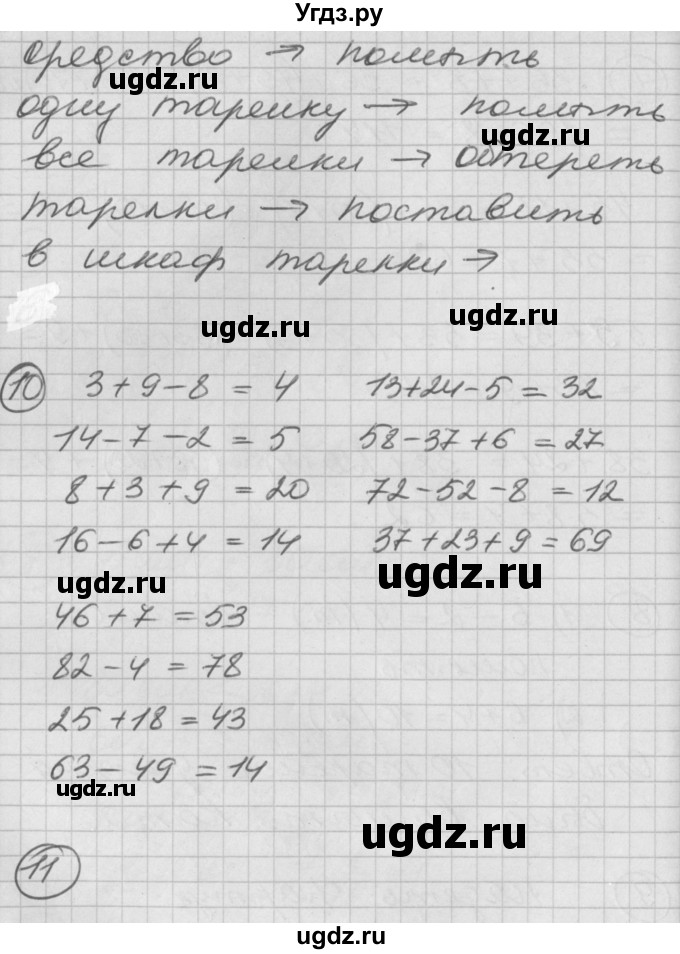 Угдз.ру
средство → помыть
ugdz.ru
одну тарелку → помыть
ugdz.ru
все тарелки → обтереть
тарелки → поставить
в шкаф тарелки →
ugdz.ru ugdz.ru
10 3+9-8 = 4 13+24-5 = 32
14-7-2 = 5 58-37+6 = 27
8+3+9 = 20 72-52-8 = 12
16-6+4 = 14 37+23+9 = 69
ugdz.ru ugdz.ru
46+7 = 53
82-4 = 78
25+18 = 43
63-49 = 14
ugdz.ru
ugdz.ru
11
ugdz.ru